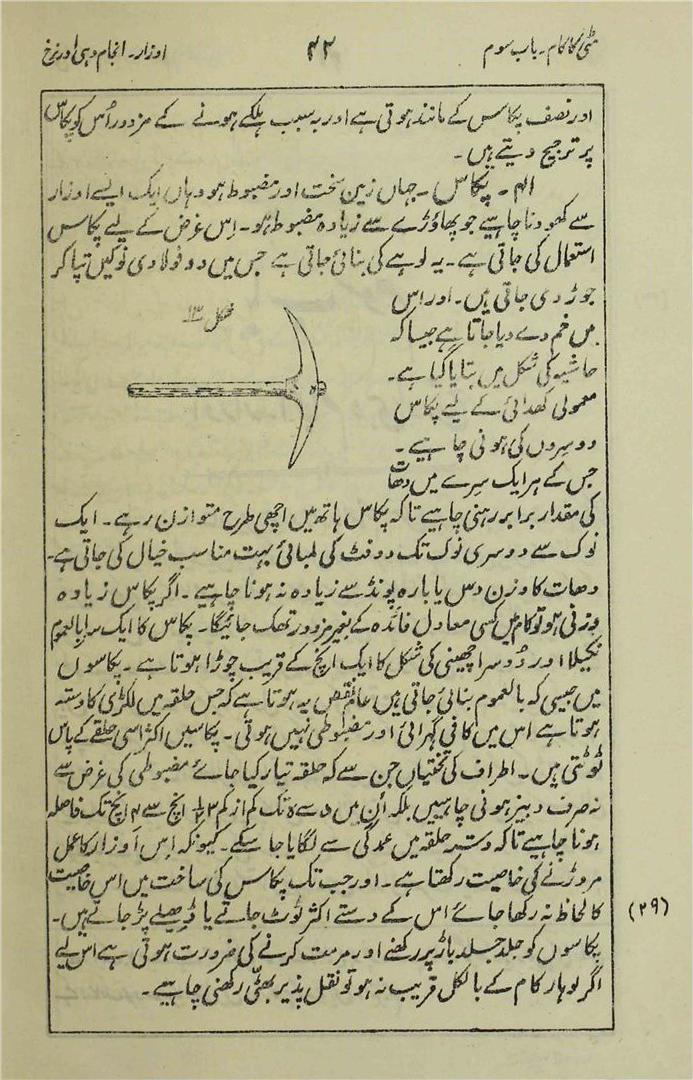 مٹی کا کام۔ باب سوم ۴۲ اوزار۔ انجام دہی اور نرخ
اور نصف پکاسس کے مانند ہوتی ہے اور بہ سبب ہلکے ہونے کے مزدور اُس کو پکاس
پر ترجیح دیتے ہیں۔
۴۱۔ پکاس۔ جہاں زمین سخت اور مضبوط ہو وہاں ایک ایسے اوزار
سے کھودنا چاہیے جو پھاؤڑے سے زیادہ مضبوط ہو۔ اِس غرض کے لیے پکاسس
استعمال کی جاتی ہے۔ یہ لوہے کی بنائی جاتی ہے جس میں دو فولادی نوکیں تپا کر
جوڑ دی جاتی ہیں۔ اور اِس
شکل ۱۳
میں خم دے دیا جاتا ہے جیسا کہ
حاشیہ کی شکل میں بتایا گیا ہے۔
معمولی کھدائی کے لیے پکاس
دو سِروں کی ہونی چاہیے۔
جس کے ہر ایک سِرے میں دھات
کی مقدار برابر رہنی چاہیے تاکہ پکاس ہاتھ میں اچھی طرح متوازن رہے۔ ایک
نوک سے دوسری نوک تک دو فٹ کی لمبائی بہت مناسب خیال کی جاتی ہے۔
دھات کا وزن دس یا بارہ پونڈ سے زیادہ نہ ہونا چاہیے۔ اگر پکاس زیادہ
وزنی ہو تو کام میں کسی معادل فائدہ کے بغیر مزدور تھک جائیگا۔ پکاس کا ایک سرا بالعموم
نکیلا اور دُوسرا چھینی کی شکل کا ایک انچ کے قریب چوڑا ہوتا ہے۔ پکاسوں
میں جیسی کہ بالعموم بنائی جاتی ہیں عام نقص یہ ہوتا ہے کہ جس حلقہ میں لکڑی کا دستہ
ہوتا ہے اس میں کافی گہرائی اور مضبوطی نہیں ہوتی۔ پکاسیں اکثر اسی حلقے کے پاس
ٹوٹتی ہیں۔ اطراف کی تختیاں جن سے کہ حلقہ تیار کیا جائے مضبوطی کی غرض سے
نہ صرف دبیز ہونی چاہییں بلکہ اُن میں ۵ سے ۵ تک کم از کم ۳½ انچ سے ۴ انچ تک فاصلہ
ہونا چاہیے تاکہ دستہ حلقہ میں عمدگی سے لگایا جا سکے۔ کیونکہ اِس اوزار کا عمل
مروڑنے کی خاصیت رکھتا ہے۔ اور جب تک پکاسس کی ساخت میں اس خاصیت
کا لحاظ نہ رکھا جائے اس کے دستے اکثر ٹوٹ جاتے یا ڈھیلے پڑ جاتے ہیں۔
(۲۹)
پکاسوں کو جلد جلد باڑ پر رکھنے اور مرمت کرنے کی ضرورت ہوتی ہے اس لیے
اگر لوہار کام کے بالکل قریب نہ ہو تو نقل پذیر بھٹی رکھنی چاہیے۔